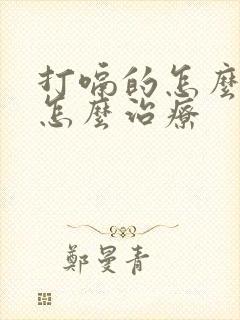 打嗝的怎麼
怎麼治療
鄭曼青